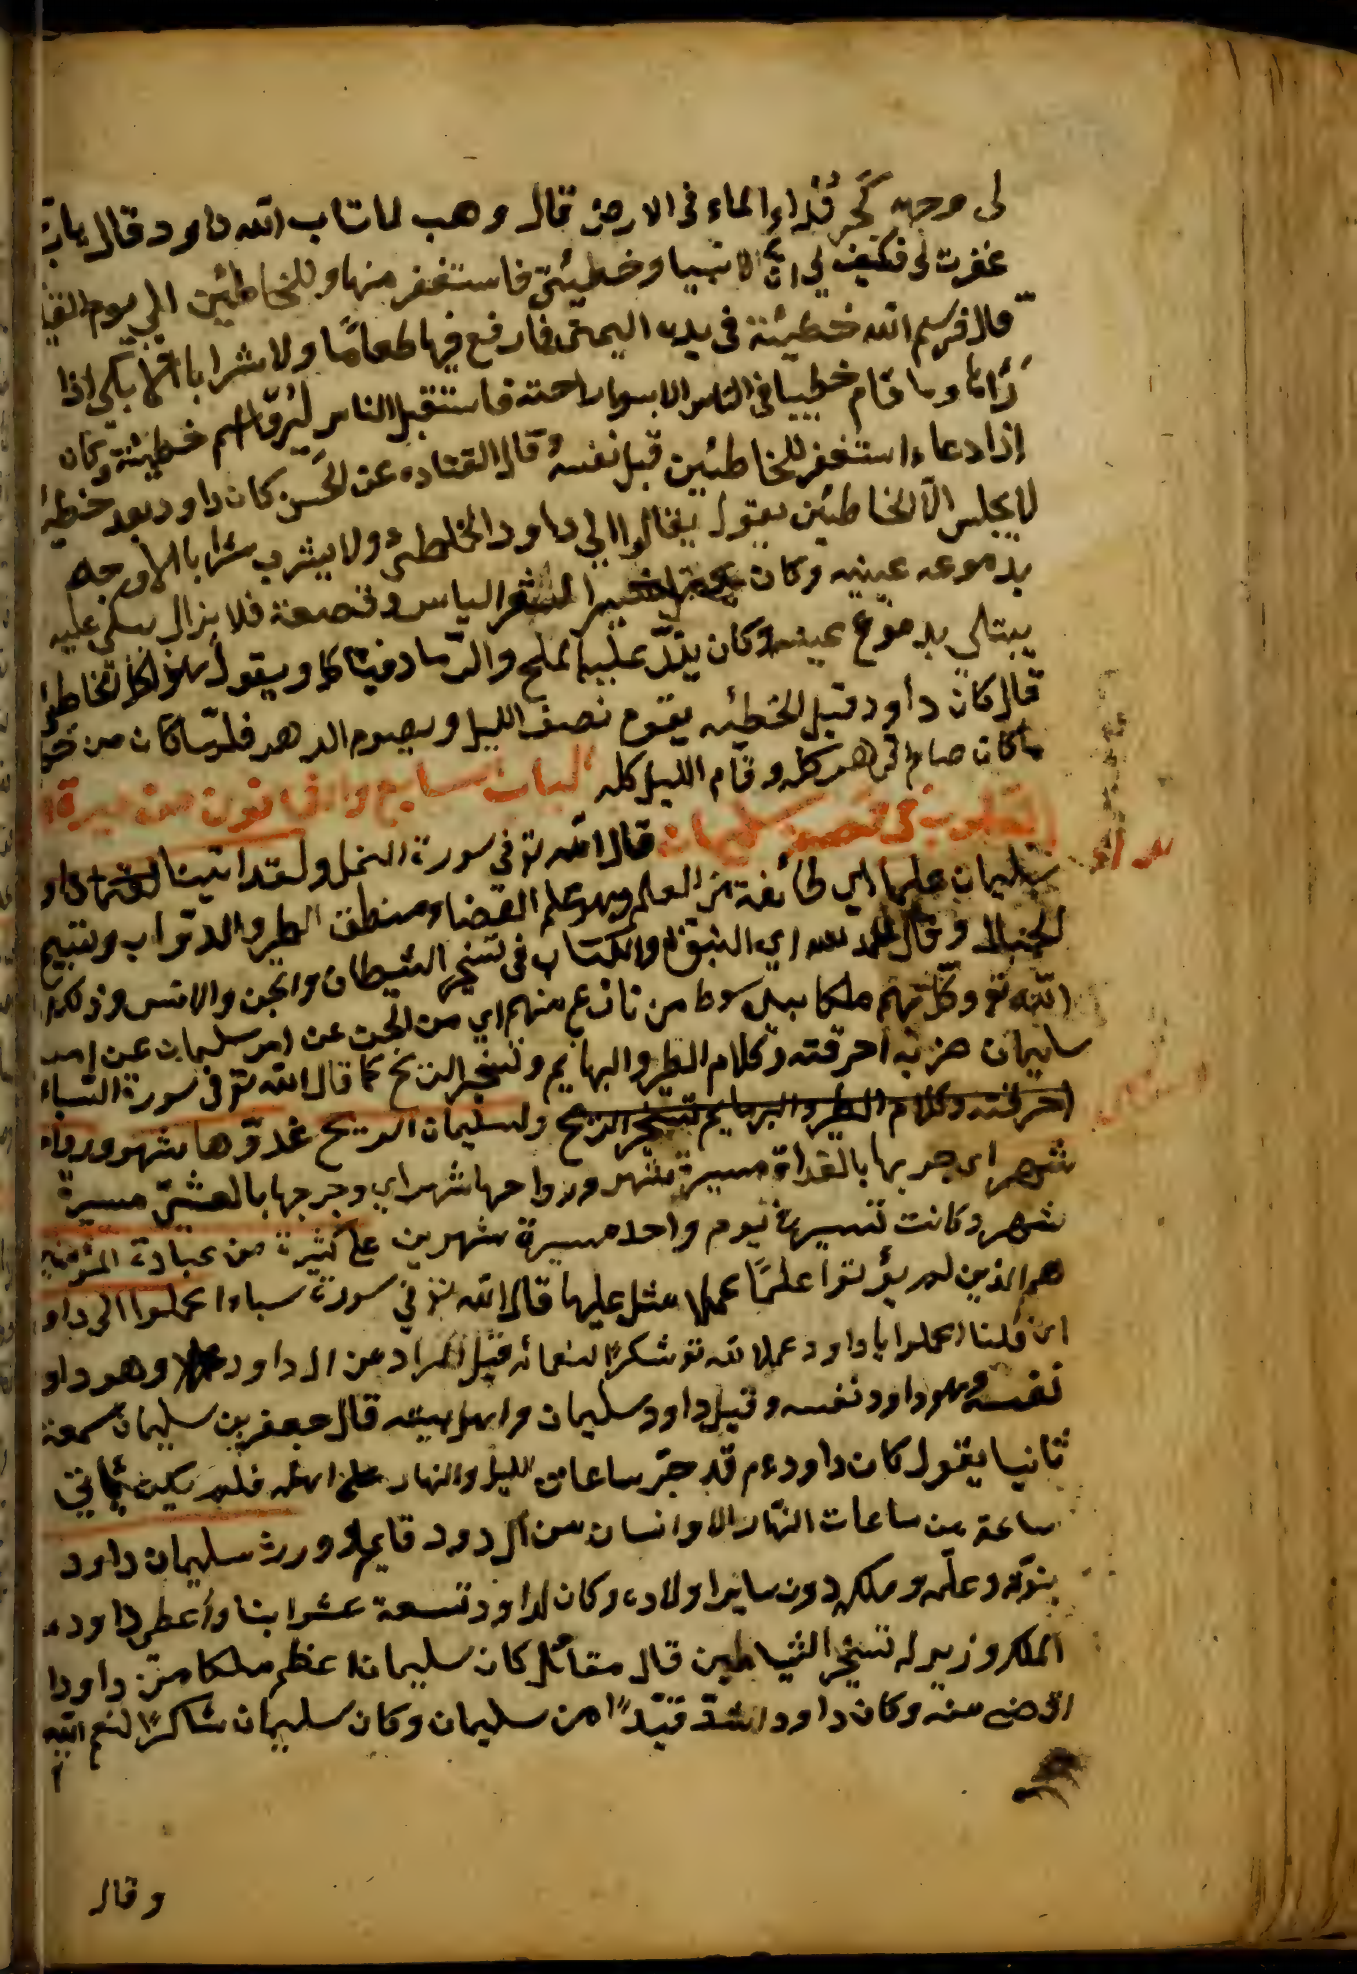 لى وجهه كخرير الماء فى الارض قال وهب لما تاب الله داود قال يارب
غفرت لى فكيف لي ان لا انسيا وخطيئتى فاستغفر منها وللخاطئين الى يوم القيا
قال فرسم الله خطيئته فى يده اليمنى فما رفع فيها طعامًا ولا شرابا الا بكى اذا
رأها وما قام خطيبا فى الناس الا بسط راحته فاستقبل الناس ليروا رسم خطيئته وكان
اذا دعاء استغفر للخاطئين قبل نفسه وقال القتاده عن الحسن كان داود بعد خطيئة
لا يجلس الا الخاطئين يقول تعالوا الي داود الخاطئ ولا يشرب شرابا الا وجه
بدموعه عينيه وكان يجعل خبز الشعير اليابس فى قصعة فلا يزال يبكى عليه
يبتلي بدموع عينيه وكان يذر عليه الملح والرماد فياكل ويقول هذا اكل الخاطئ
قال كان داود قبل الخطيئه يقوم نصف الليل ويصوم الدهر فلما كان من خطا
ما كان صام الدهر كله وقام الليل كله الباب السابع والثمانون من سيرة
القلوب فى قصة سليمان قال الله تع فى سورة النمل ولقد اتينا داود
وسليمان علما اي طائفة من العلم وهو علم القضاء ومنطق الطير والدواب وتسبيح
الجبال وقال الحمد لله اي النبوة والكتاب فى تسخير الشيطان والجن والانس وذلك
الله تع وكل بهم ملكا بيده سوط من نار زع منهم اي من الجن عن امر سليمان عن امر
سليمان ضربه احرقته وكلام الطير والبهايم وتسخير الريح كما قال الله تع فى سورة السباء
احرقته وكلام الطير والبهايم تسخير الريح ولسليمان الريح غدوها شهر ورواء
شهر اى جر بها بالغداة مسيرة شهر ورواحها شهر اي وجر جها بالعشي مسيرة
شهر وكانت تسير به في يوم واحد مسيرة شهرين على كثيرة من عبادة المؤمنين
هم الذين لم يؤتوا علمًا عملا مثل عليها قال الله تع في سورة سباء اعملوا ال داو
اى قلنا اعملوا يا داود عملا لله تع شكرًا لنعمائه قيل المراد من ال داود وهو داو
نفسه وهو داود نفسه وقيل داود سليمان واهل بيته قال جعفر بن سليمان سمعة
ثانيا يقول كان داود عم قد جز ساعات الليل والنهار على اهله فلم يكن ياتى
ساعة من ساعات النهار الا وانسان من ال دود قايم وورث سليمان داود
بنوته وعلمه وملكه دون ساير اولاده وكان لداود تسعة عشر ابنا واعطى داود
الملك وزيد له تسخير الشياطين قال مقاتل كان سليمان اعظم ملكا من داود ا
اقضى منه وكان داود اشد تعبدًا من سليمان وكان سليمان شاكرًا لنعم الله
وقال